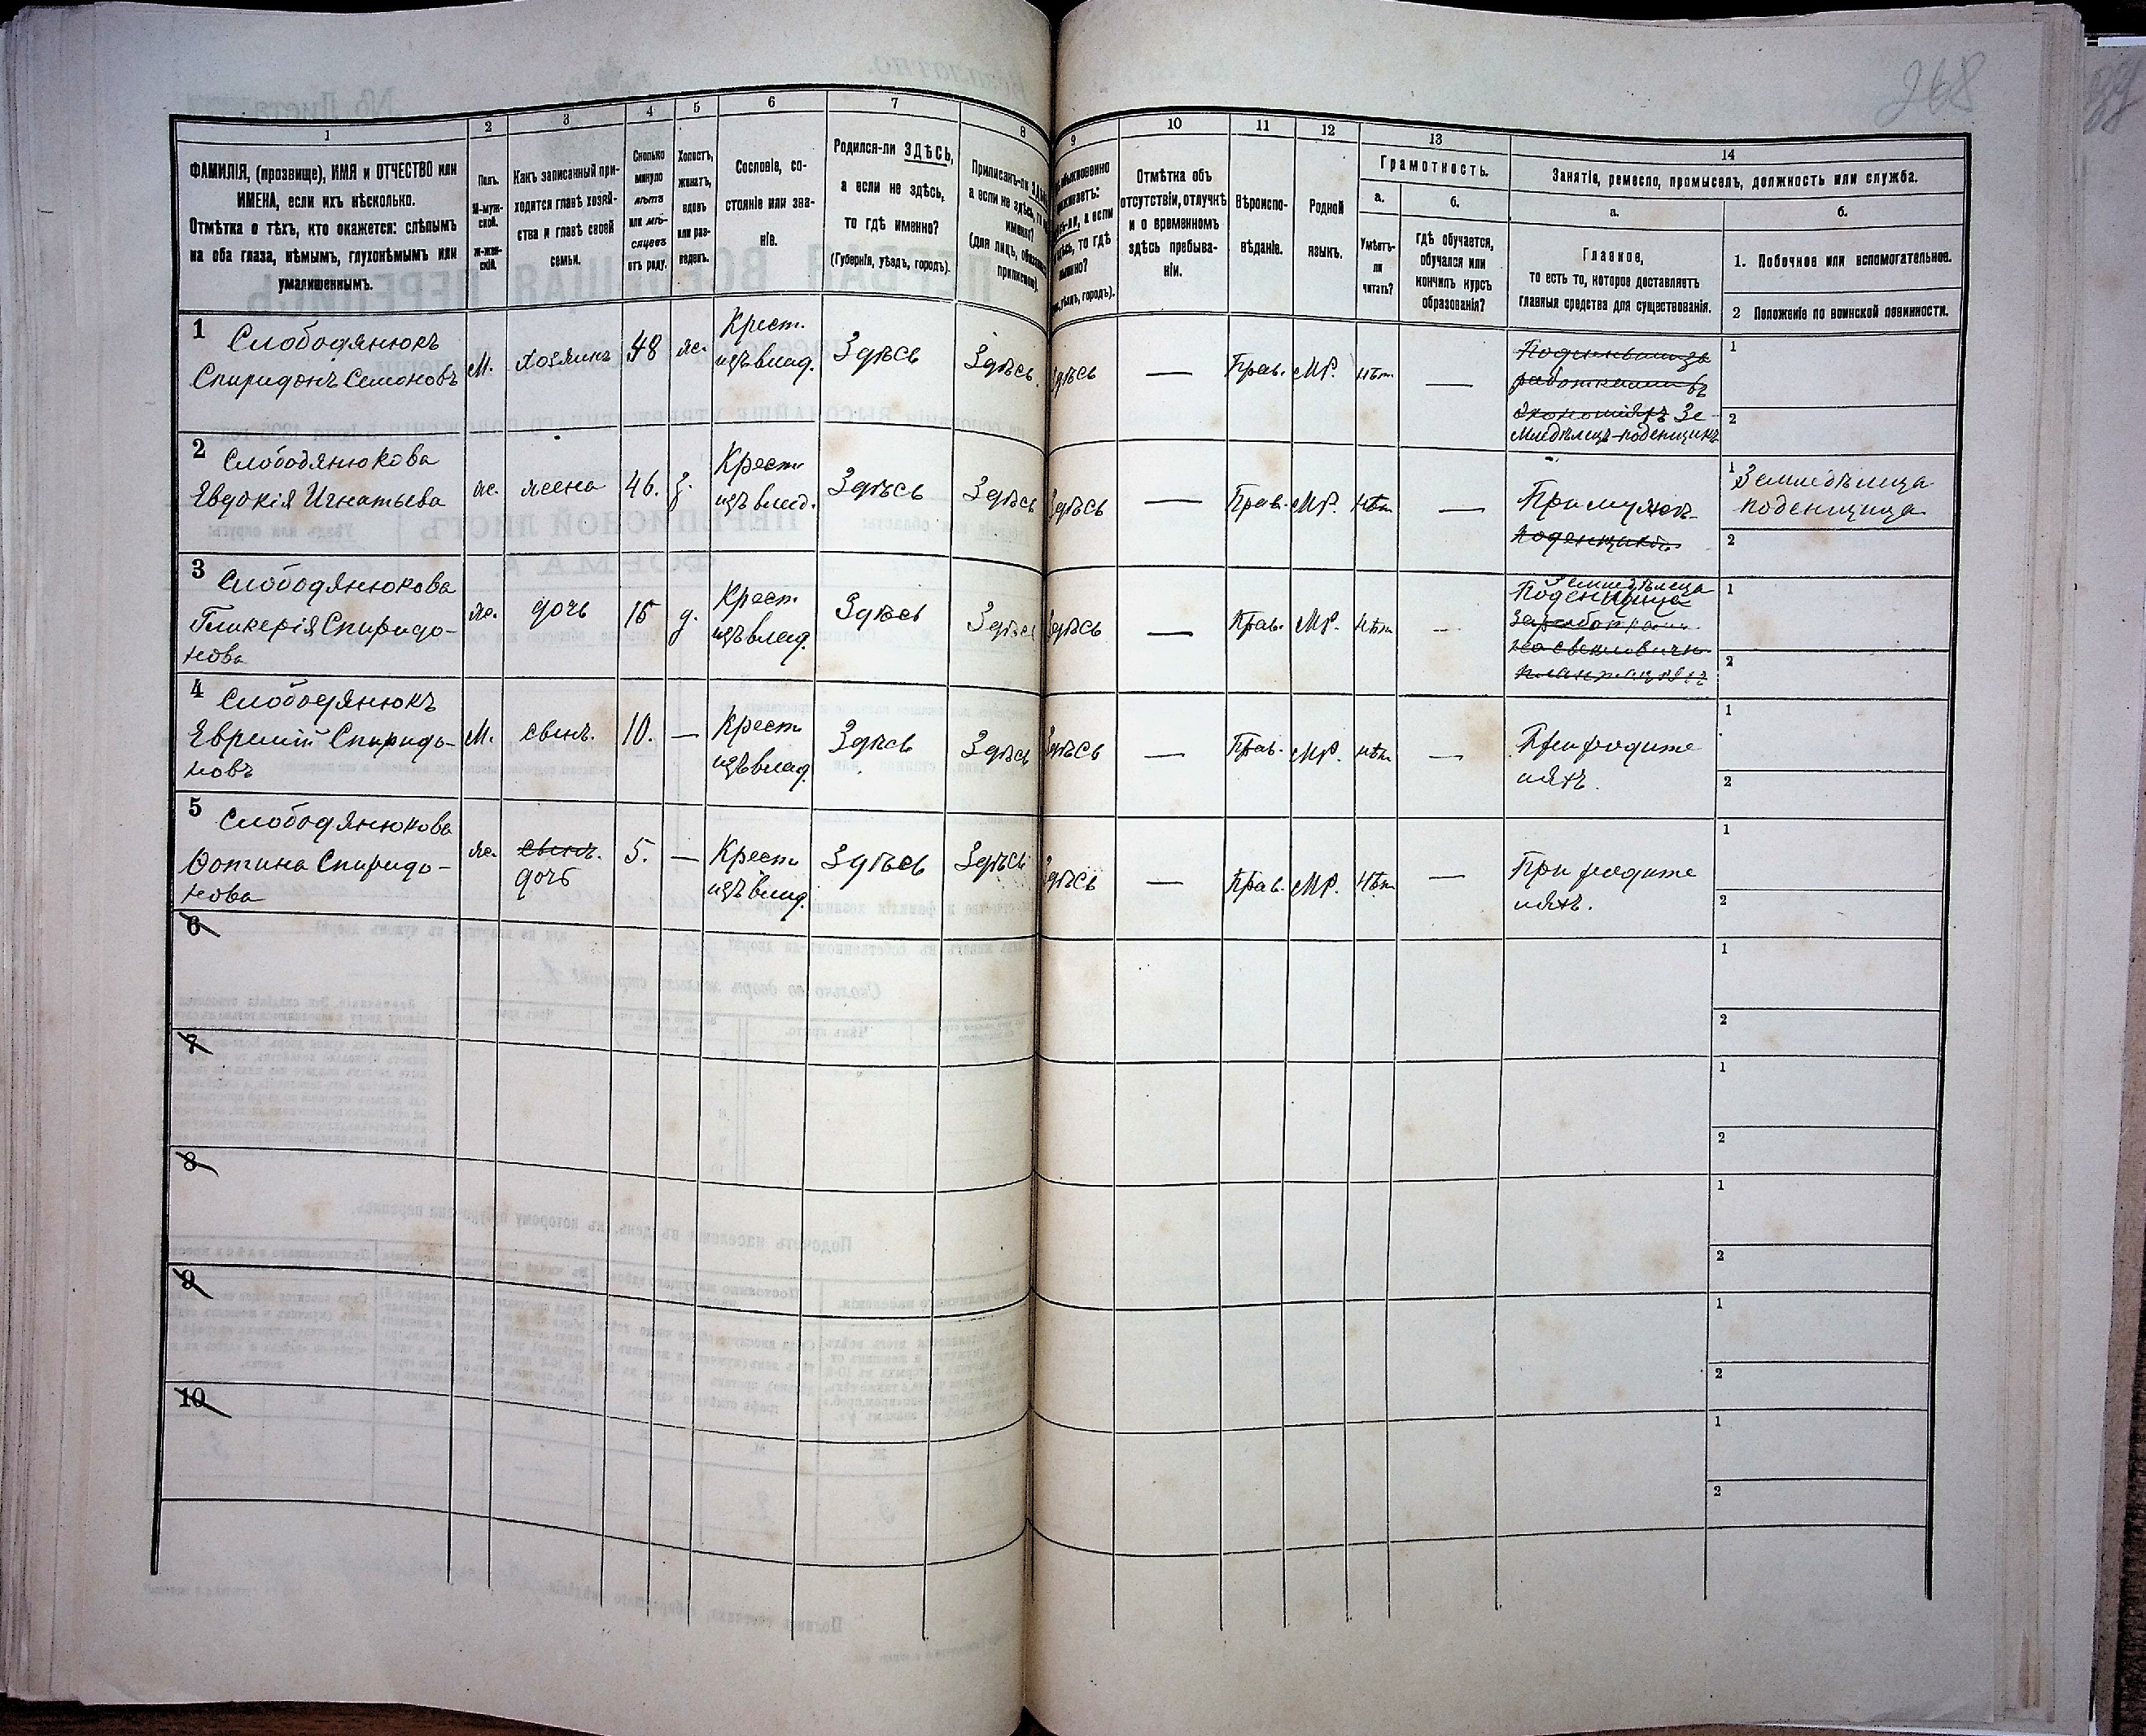 268
1
2
3
4
5
6
7
8
9
10
11
12
13
14
ФАМИЛІЯ, (прозвище), ИМЯ и ОТЧЕСТВО или
ИМЕНА, если ихъ нѣсколько.
Отмѣтка о тѣхъ, кто окажется: слѣпымъ
на оба глаза, нѣмымъ, глухонѣмымъ или
умалишеннымъ.
Полъ.
М-муж-
ской.
Ж-жен-
скій.
Какъ записанный при-
ходится главѣ хозяй-
ства и главѣ своей
семьи.
Сколько
минуло
лѣтъ
или мѣ-
сяцевъ
отъ роду.
Холостъ,
женатъ,
вдовъ
или раз-
веденъ.
Сословіе, со-
стояніе или зва-
ніе.
Родился-ли ЗДѢСЬ,
а если не здѣсь,
то гдѣ именно?
(Губернія, уѣздъ, городъ).
Приписанъ-ли
а если не здѣсь,
(для лицъ,
Отмѣтка объ
отсутствіи, отлучкѣ
и о временномъ
здѣсь пребыва-
ніи.
Вѣроиспо-
вѣданіе.
Родной
языкъ.
Грамотность.
а.
Умѣетъ-
ли
читать?
б.
гдѣ обучается,
обучался или
кончилъ курсъ
образованія?
Занятіе, ремесло, промыселъ, должность или служба.
а.
Главное,
то есть то, которое доставляетъ
главныя средства для существованія.
б.
1. Побочное или вспомогательное.
2 Положеніе по воинской повинности.
1 Слободянюкъ
Спиридонъ Семеновъ
М.
хозяинъ
48
ж.
Крест.
изъ влад.
Здѣсь
Здѣсь.
Здѣсь
—
Прав.
МР.
нѣт
—
Зе-
мледѣлецъ-поденщикъ
1
2
2 Слободянюкова
Евдокія Игнатьева
ж.
жена
46.
з.
Крест
изъ влад.
Здѣсь
Здѣсь
Здѣсь
—
Прав.
МР.
нѣт
—
При мужѣ
1 Земледѣлица
поденщица
2
3 Слободянюкова
Гликерія Спиридо-
нова
ж.
дочь
15
д.
Крест
изъ влад.
Здѣсь
Здѣсь
Здѣсь
—
Прав.
МР.
нѣт
—
Земледѣлица
Поденщица
1
2
4 Слободянюкъ
Евремій Спиридо-
новъ
М.
сынъ.
10.
—
Крест
изъ влад.
Здѣсь
Здѣсь
Здѣсь
—
Прав.
МР.
нѣт
—
При родите
ляхъ.
1
2
5 Слободянюкова
Фотина Спиридо-
нова
ж.
сынъ.
дочь
5.
—
Крест
изъ влад.
Здѣсь
Здѣсь
Здѣсь
—
Прав.
МР.
нѣт
—
При родите
ляхъ.
1
2
6
1
2
7
1
2
8
1
2
9
1
2
10
1
2